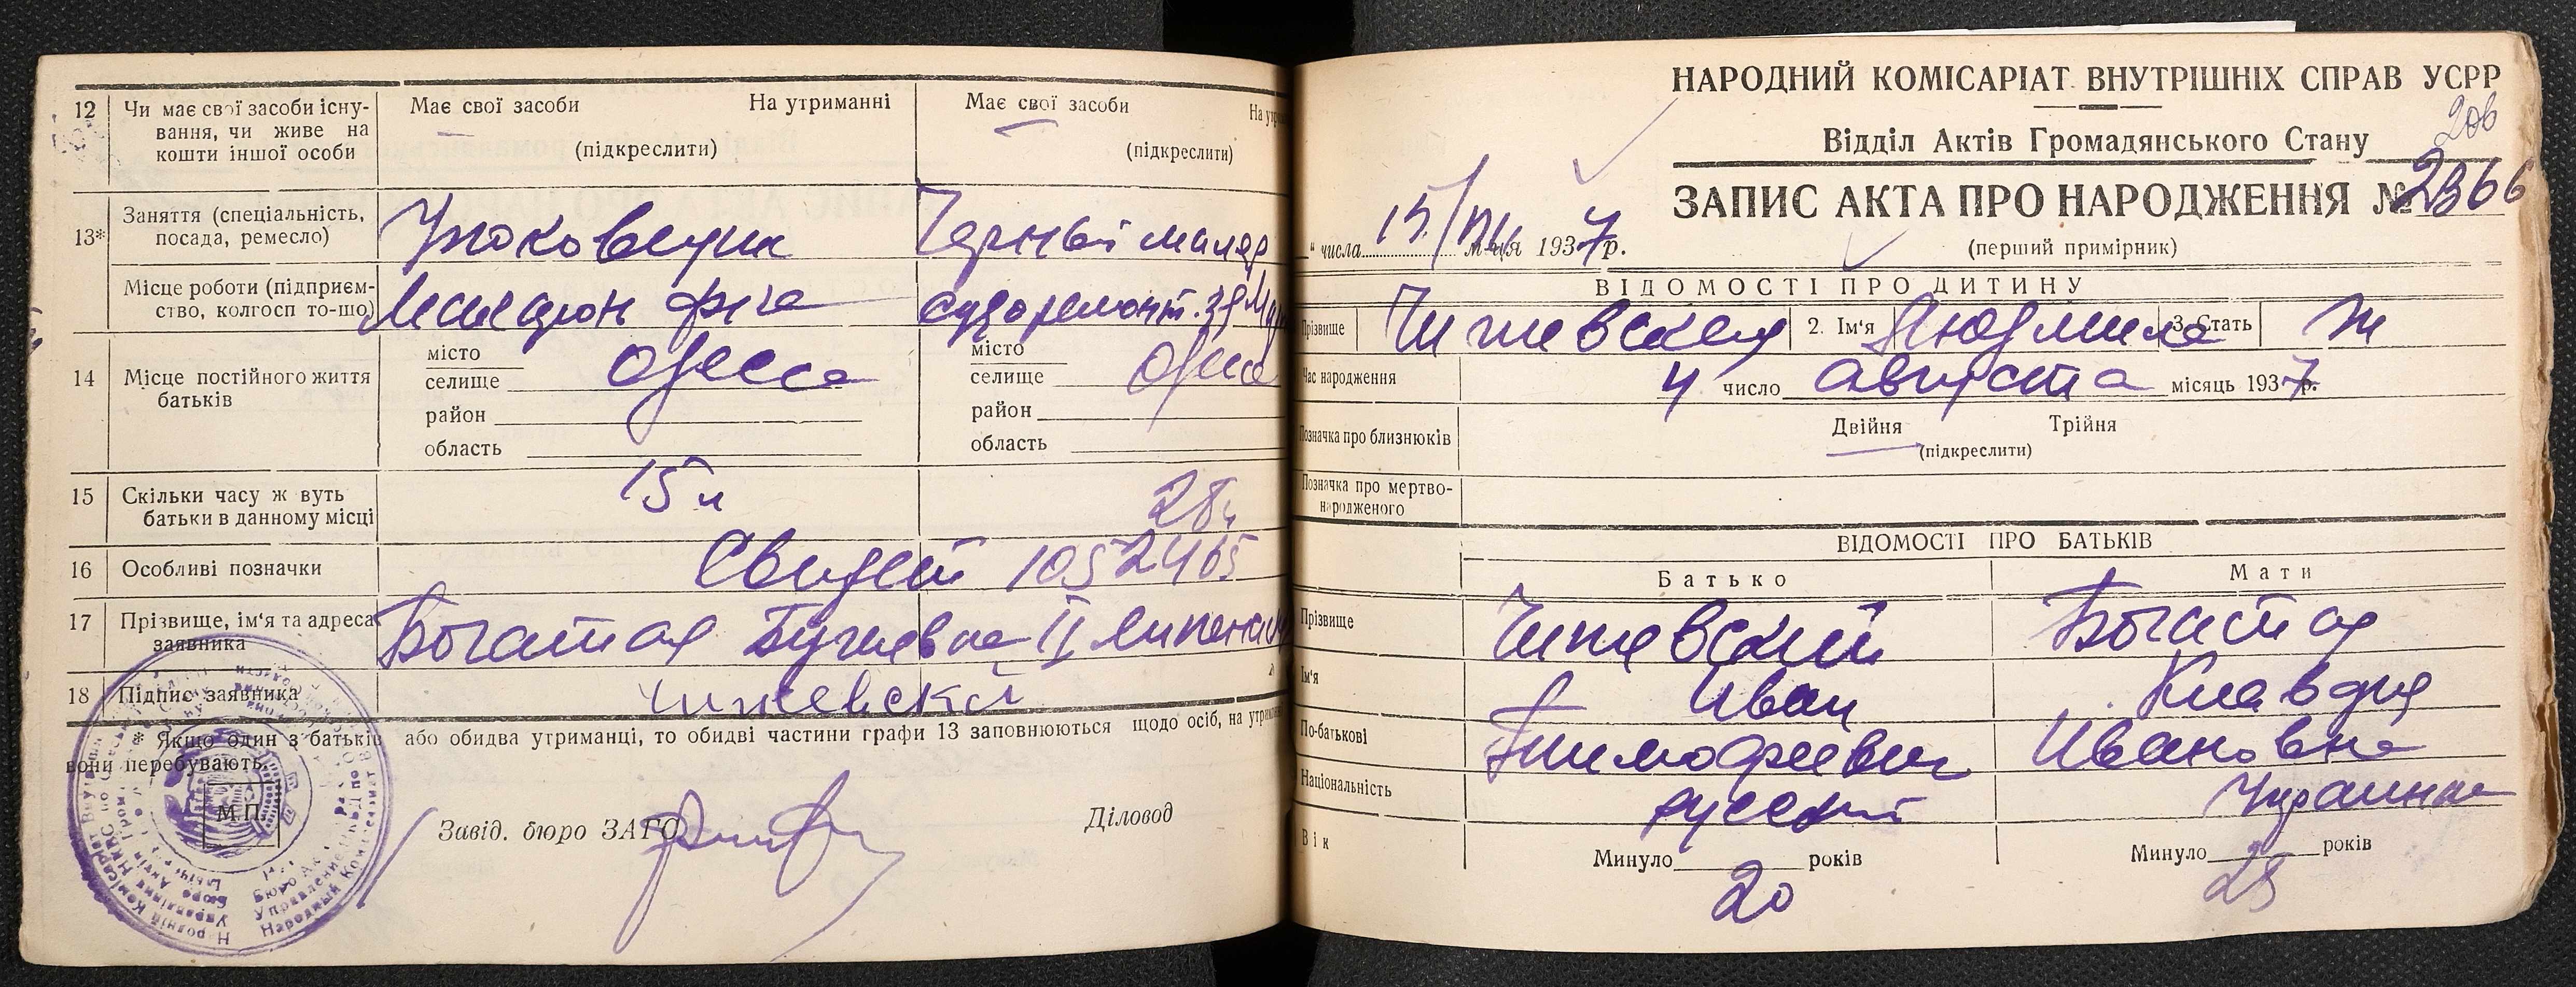 12 Чи має свої засоби існу-
вання, чи живе на
кошти іншої особи
Має свої засоби На утриманні
(підкреслити)
Має свої засоби На утри
(підкреслити)
13* Заняття (спеціальність,
посада, ремесло)
Чорный маляр
Місце роботи (підприєм-
ство, колгосп то-що)
судоремонт. зд
14 Місце постійного життя
батьків
місто
селище Одесса
район
область
місто
селище Одесса
район
область
15 Скільки часу ж вуть
батьки в данному місці
15 л
28 л
16 Особливі позначки
Свидет 1052465
17 Прізвище, ім'я та адреса
заявника
Богатая II
18 Підпис заявника
Чижевский
* Якщо один з батьків або обидва утриманці, то обидві частини графи 13 заповнюються щодо осіб, на утриман
вони перебувають.
М.П.
Завід. бюро ЗАГС
Діловод
НАРОДНИЙ КОМІСАРІАТ ВНУТРІШНІХ СПРАВ УСРР
206
Відділ Актів Громадянського Стану
ЗАПИС АКТА ПРО НАРОДЖЕННЯ № 2366
" числа 15/VIII м-ця 1937 р.
(перший примірник)
ВІДОМОСТІ ПРО ДИТИНУ
Прізвище Чижевская 2. Ім'я Людмила 3. Стать Ж
Час народження 4 число Августа місяць 1937 р.
Позначка про близнюків
Двійня Трійня
(підкреслити)
Позначка про мертво-
народженого
ВІДОМОСТІ ПРО БАТЬКІВ
Батько Мати
Прізвище Чижевский Богатая
Ім'я Иван Клавдия
По-батькові Тимофеевич Ивановна
Національність русский Украинка
Вік Минуло 20 років Минуло 28 років